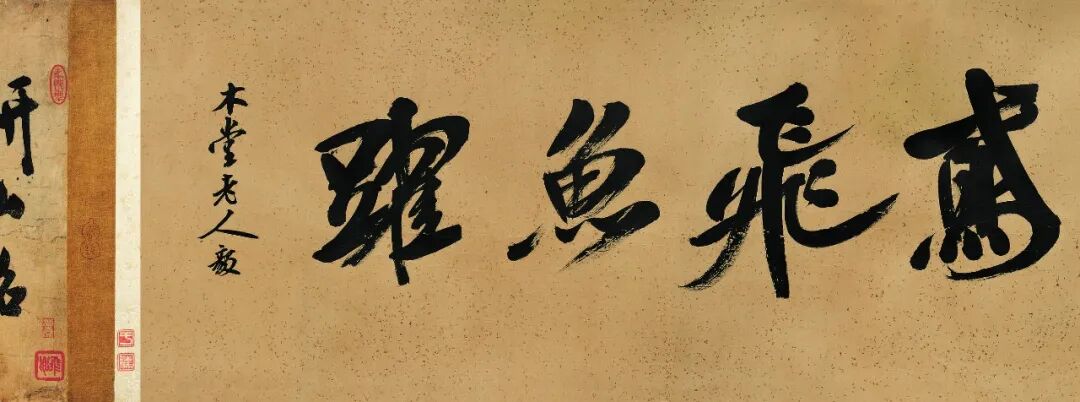 鳶飛魚躍
木堂老人毅
开山